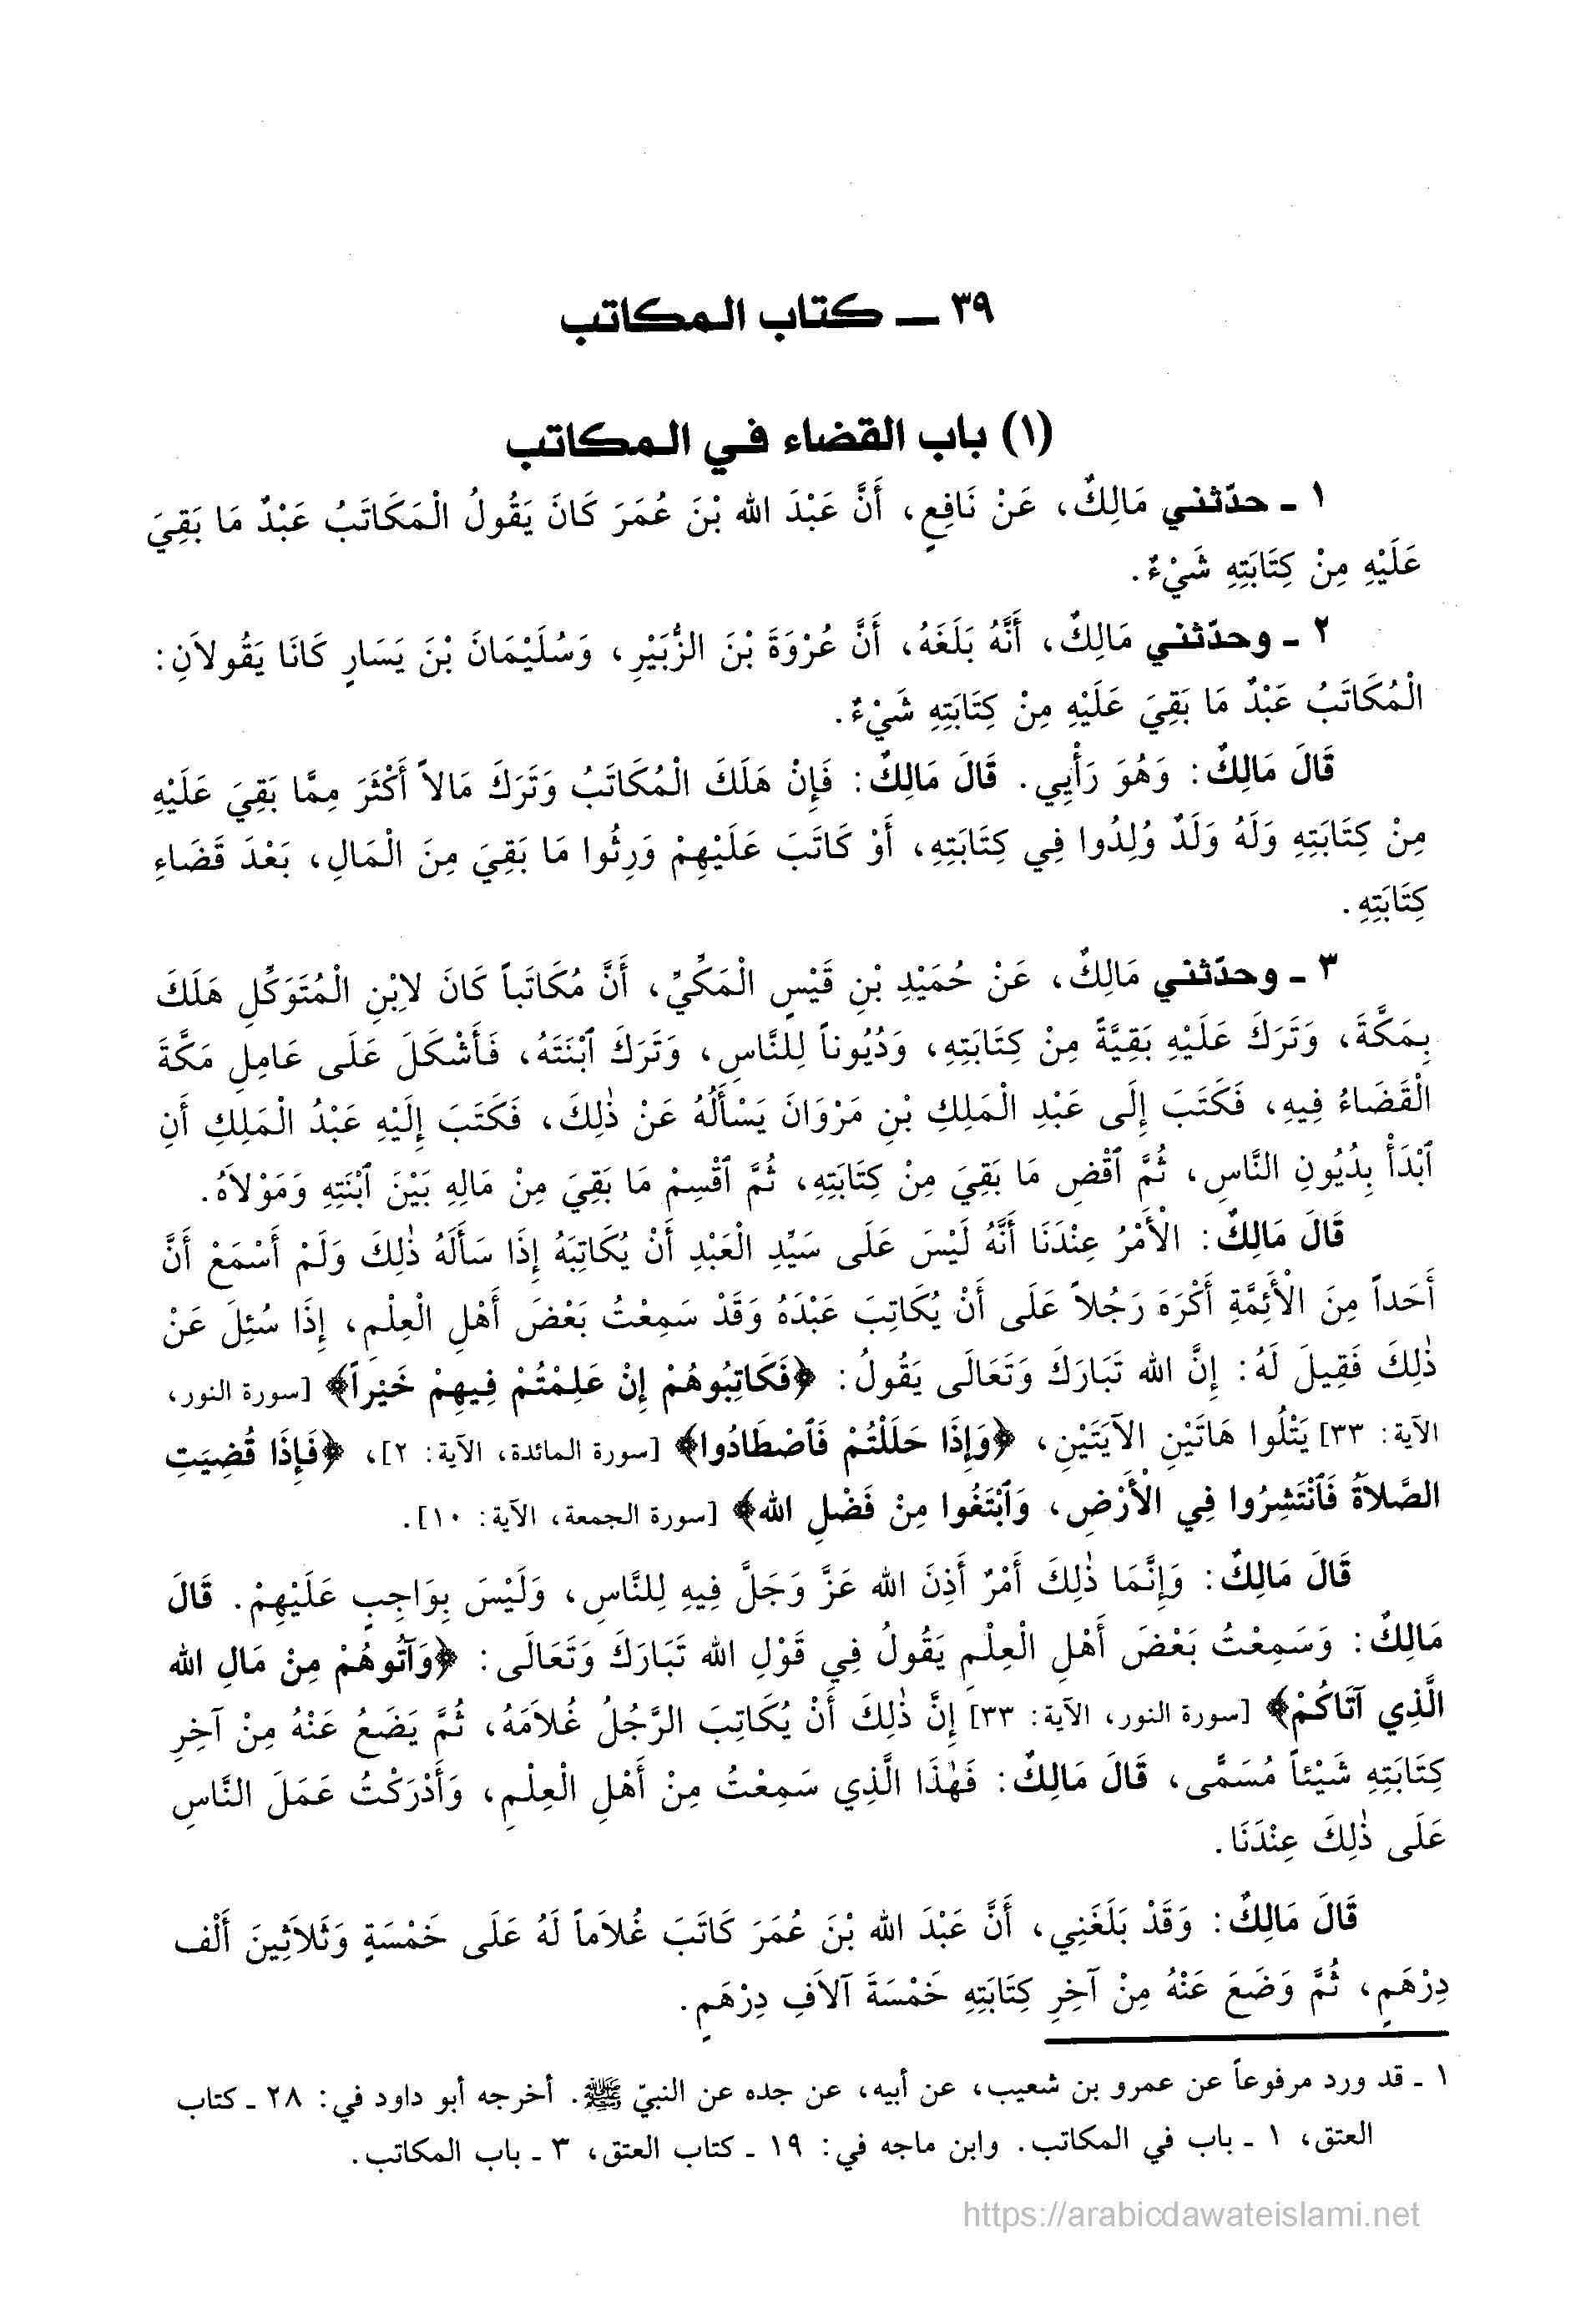 ٣٩ ـ كتاب المكاتب
(١) باب القضاء في المكاتب
١ ـ حدّثني مَالِكٌ، عَنْ نَافِعٍ، أَنَّ عَبْدَ الله بْنَ عُمَرَ كَانَ يَقُولُ الْمَكَاتَبُ عَبْدٌ مَا بَقِيَ
عَلَيْهِ مِنْ كِتَابَتِهِ شَيْءٌ.
٢ ـ وحدّثني مَالِكٌ، أَنَّهُ بَلَغَهُ، أَنَّ عُرْوَةَ بْنَ الزُّبَيْرِ، وَسُلَيْمَانَ بْنَ يَسَارٍ كَانَا يَقُولاَنِ:
الْمُكَاتَبُ عَبْدٌ مَا بَقِيَ عَلَيْهِ مِنْ كِتَابَتِهِ شَيْءٌ.
قَالَ مَالِكٌ: وَهُوَ رَأْيِي. قَالَ مَالِكٌ: فَإِنْ هَلَكَ الْمُكَاتَبُ وَتَرَكَ مَالاً أَكْثَرَ مِمَّا بَقِيَ عَلَيْهِ
مِنْ كِتَابَتِهِ وَلَهُ وَلَدٌ وُلِدُوا فِي كِتَابَتِهِ، أَوْ كَاتَبَ عَلَيْهِمْ وَرِثُوا مَا بَقِيَ مِنَ الْمَالِ، بَعْدَ قَضَاءِ
كِتَابَتِهِ.
٣ ـ وحدّثني مَالِكٌ، عَنْ حُمَيْدِ بْنِ قَيْسٍ الْمَكِّيِّ، أَنَّ مُكَاتَباً كَانَ لاِبْنِ الْمُتَوَكِّلِ هَلَكَ
بِمَكَّةَ، وَتَرَكَ عَلَيْهِ بَقِيَّةً مِنْ كِتَابَتِهِ، وَدُيُوناً لِلنَّاسِ، وَتَرَكَ ٱبْنَتَهُ، فَأَشْكَلَ عَلَى عَامِلِ مَكَّةَ
الْقَضَاءُ فِيهِ، فَكَتَبَ إِلَى عَبْدِ الْمَلِكِ بْنِ مَرْوَانَ يَسْأَلُهُ عَنْ ذٰلِكَ، فَكَتَبَ إِلَيْهِ عَبْدُ الْمَلِكِ أَنِ
ٱبْدَأْ بِدُيُونِ النَّاسِ، ثُمَّ ٱقْضِ مَا بَقِيَ مِنْ كِتَابَتِهِ، ثُمَّ ٱقْسِمْ مَا بَقِيَ مِنْ مَالِهِ بَيْنَ ٱبْنَتِهِ وَمَوْلاَهُ.
قَالَ مَالِكٌ: الْأَمْرُ عِنْدَنَا أَنَّهُ لَيْسَ عَلَى سَيِّدِ الْعَبْدِ أَنْ يُكَاتِبَهُ إِذَا سَأَلَهُ ذٰلِكَ وَلَمْ أَسْمَعْ أَنَّ
أَحَداً مِنَ الْأَئِمَّةِ أَكْرَهَ رَجُلاً عَلَى أَنْ يُكَاتِبَ عَبْدَهُ وَقَدْ سَمِعْتُ بَعْضَ أَهْلِ الْعِلْمِ، إِذَا سُئِلَ عَنْ
ذٰلِكَ فَقِيلَ لَهُ: إِنَّ الله تَبَارَكَ وَتَعَالَى يَقُولُ: ﴿فَكَاتِبُوهُمْ إِنْ عَلِمْتُمْ فِيهِمْ خَيْراً﴾ [سورة النور،
الآية: ٣٣] يَتْلُوا هَاتَيْنِ الآيَتَيْنِ، ﴿وَإِذَا حَلَلْتُمْ فَٱصْطَادُوا﴾ [سورة المائدة، الآية: ٢]، ﴿فَإِذَا قُضِيَتِ
الصَّلاَةُ فَٱنْتَشِرُوا فِي الْأَرْضِ، وَٱبْتَغُوا مِنْ فَضْلِ الله﴾ [سورة الجمعة، الآية: ١٠].
قَالَ مَالِكٌ: وَإِنَّمَا ذٰلِكَ أَمْرٌ أَذِنَ الله عَزَّ وَجَلَّ فِيهِ لِلنَّاسِ، وَلَيْسَ بِوَاجِبٍ عَلَيْهِمْ. قَالَ
مَالِكٌ: وَسَمِعْتُ بَعْضَ أَهْلِ الْعِلْمِ يَقُولُ فِي قَوْلِ الله تَبَارَكَ وَتَعَالَى: ﴿وَآتُوهُمْ مِنْ مَالِ الله
الَّذِي آتَاكُمْ﴾ [سورة النور، الآية: ٣٣] إِنَّ ذٰلِكَ أَنْ يُكَاتِبَ الرَّجُلُ غُلاَمَهُ، ثُمَّ يَضَعُ عَنْهُ مِنْ آخِرِ
كِتَابَتِهِ شَيْئاً مُسَمًّى، قَالَ مَالِكٌ: فَهٰذَا الَّذِي سَمِعْتُ مِنْ أَهْلِ الْعِلْمِ، وَأَدْرَكْتُ عَمَلَ النَّاسِ
عَلَى ذٰلِكَ عِنْدَنَا.
قَالَ مَالِكٌ: وَقَدْ بَلَغَنِي، أَنَّ عَبْدَ الله بْنَ عُمَرَ كَاتَبَ غُلاَماً لَهُ عَلَى خَمْسَةٍ وَثَلاَثِينَ أَلْف
دِرْهَمٍ، ثُمَّ وَضَعَ عَنْهُ مِنْ آخِرِ كِتَابَتِهِ خَمْسَةَ آلاَفِ دِرْهَمٍ.
١ ـ قد ورد مرفوعاً عن عمرو بن شعيب، عن أبيه، عن جده عن النبيّ ﷺ. أخرجه أبو داود في: ٢٨ ـ كتاب
العتق، ١ ـ باب في المكاتب. وابن ماجه في: ١٩ ـ كتاب العتق، ٣ ـ باب المكاتب.
https://arabicdawateislami.net